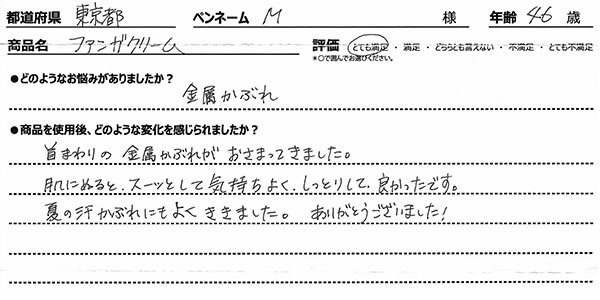 都道府県 東京都 ペンネーム M 様 年齢 46 歳
商品名 ファンガクリーム 評価 とても満足 ・ 満足 ・ どちらとも言えない ・ 不満足 ・ とても不満足
*○で囲んでお選びください。
●どのようなお悩みがありましたか？
金属かぶれ
●商品を使用後、どのような変化を感じられましたか？
首まわりの金属かぶれが おさまってきました。
肌にぬると、スーッとして気持ちよく、しっとりして、良かったです。
夏の汗かぶれにもよくききました。 ありがとうございました!